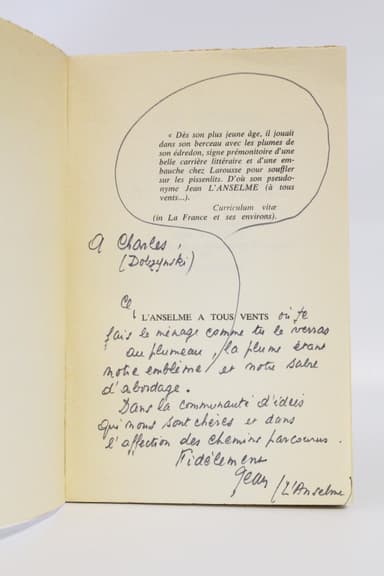 « Dès son plus jeune âge, il jouait
dans son berceau avec les plumes de
son édredon, signe prémonitoire d'une
belle carrière littéraire et d'une em-
bauche chez Larousse pour souffler
sur les pissenlits. D'où son pseudo-
nyme Jean L'ANSELME (à tous
vents...).
Curriculum vitæ
(in La France et ses environs).
A Charles,
(Dobzynski)
Ce
L'ANSELME A TOUS VENTS où je
fais le ménage comme tu le verras
au plumeau, la plume étant
notre emblème et notre sabre
d'abordage.
Dans la communauté d'idées
qui nous sont chères et dans
l'affection des chemins parcourus.
Fidèlement
Jean (L'Anselme)